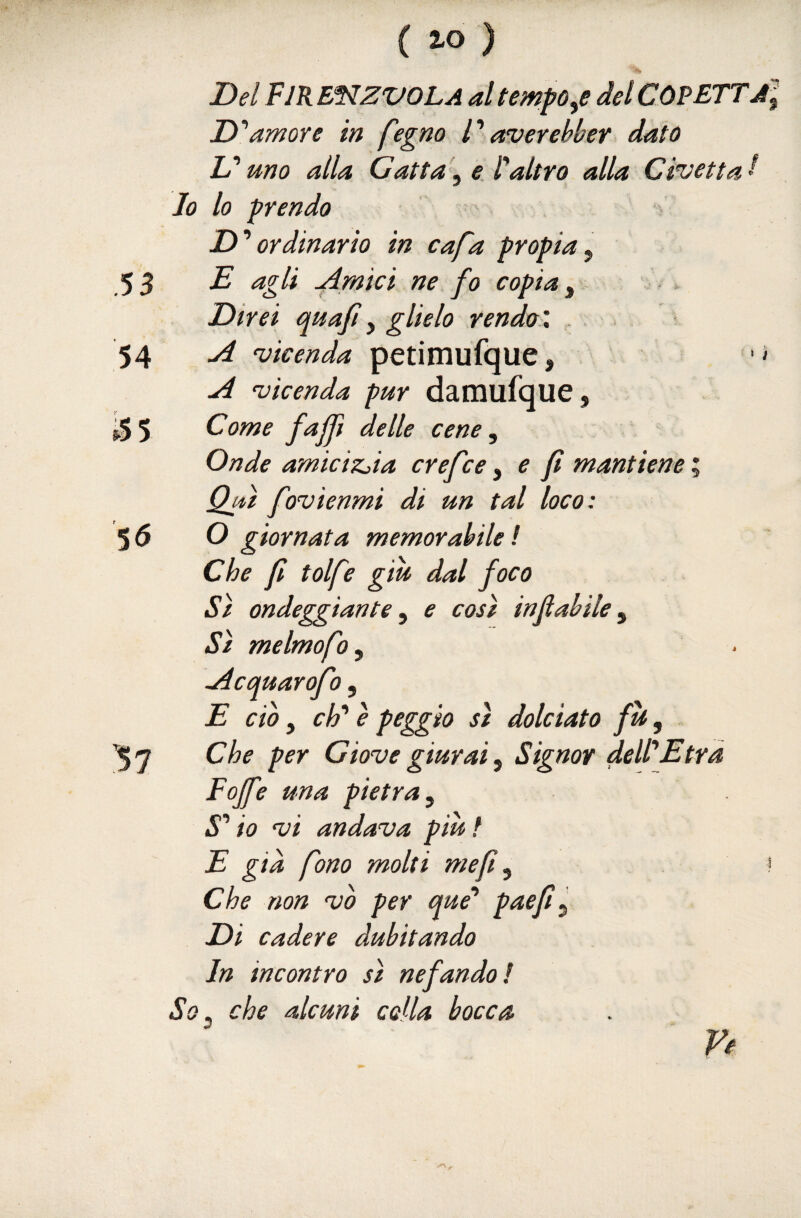 ( 20 )
Del FIRENZVOLA al tempo, e del COPETTA,
D'amore in ſegno l'averebber dato
L'uno alla Gatta, e l'altro alla Civetta!
Io lo prendo
D'ordinario in caſa propia,
53 E agli Amici ne fo copia,
Direi quaſi, glielo rendo:
54 A vicenda petimuſque,
A vicenda pur damuſque,
55 Come faſſi delle cene,
Onde amicizia creſce, e ſi mantiene;
Quì ſovienmi di un tal loco:
56 O giornata memorabile!
Che ſi tolſe giù dal foco
Sì ondeggiante, e così inſtabile,
Sì melmoſo,
Acquaroſo,
E ciò, ch'è peggio sì dolciato fù,
57 Che per Giove giurai, Signor dell'Etra
Foſſe una pietra,
S'io vi andava più!
E già ſono molti meſi,
Che non vò per que' paeſi,
Di cadere dubitando
In incontro sì nefando!
So, che alcuni colla bocca
Ve